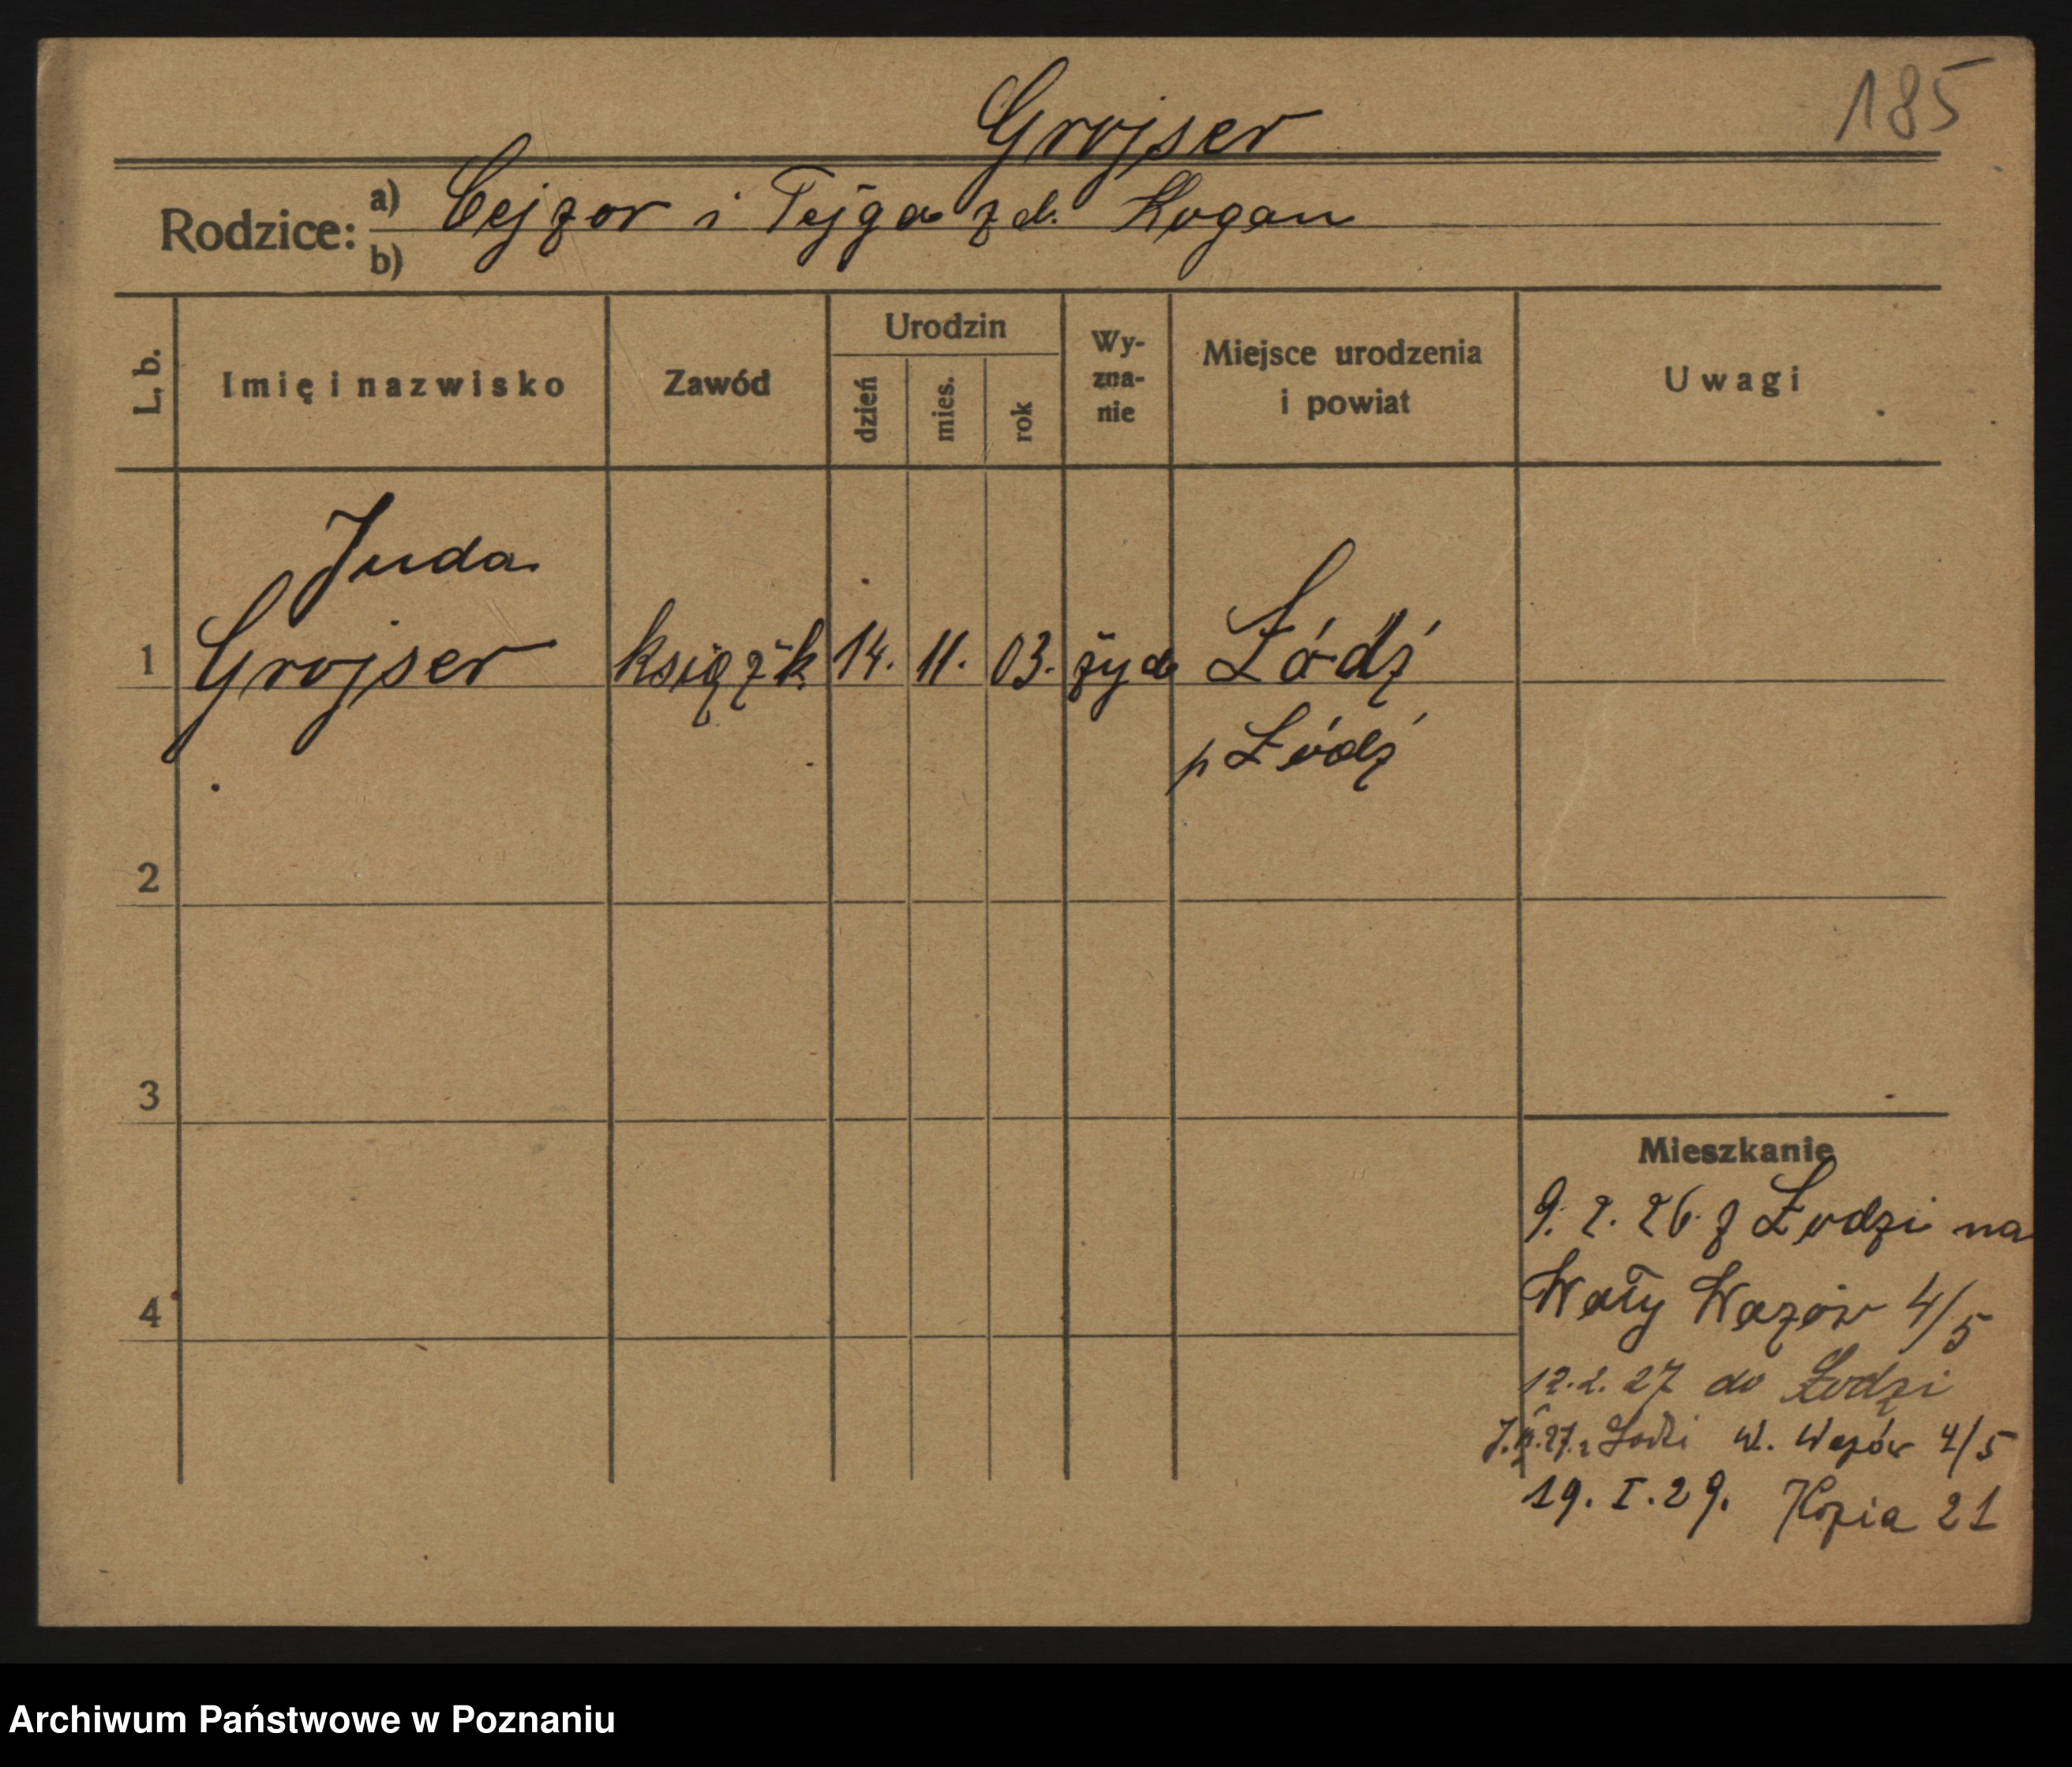 Grojser
185
Rodzice: a) Cejzor i Fejga z d. Kogan
b)
L. b.
Imię i nazwisko
Zawód
Urodzin
dzień
mies.
rok
Wy-
zna-
nie
Miejsce urodzenia
i powiat
Uwagi
Juda
1 Grojser książk. 14. 11. 03. żyd Łódź
p Łódź
2
3
4
Mieszkanie
9. 2. 26. z Łodzi na
Wały Wazów 4/5
12. 2. 27 do Łodzi
27. z Łodzi W. Wazów 4/5
19. I. 29. Kopia 21
Archiwum Państwowe w Poznaniu